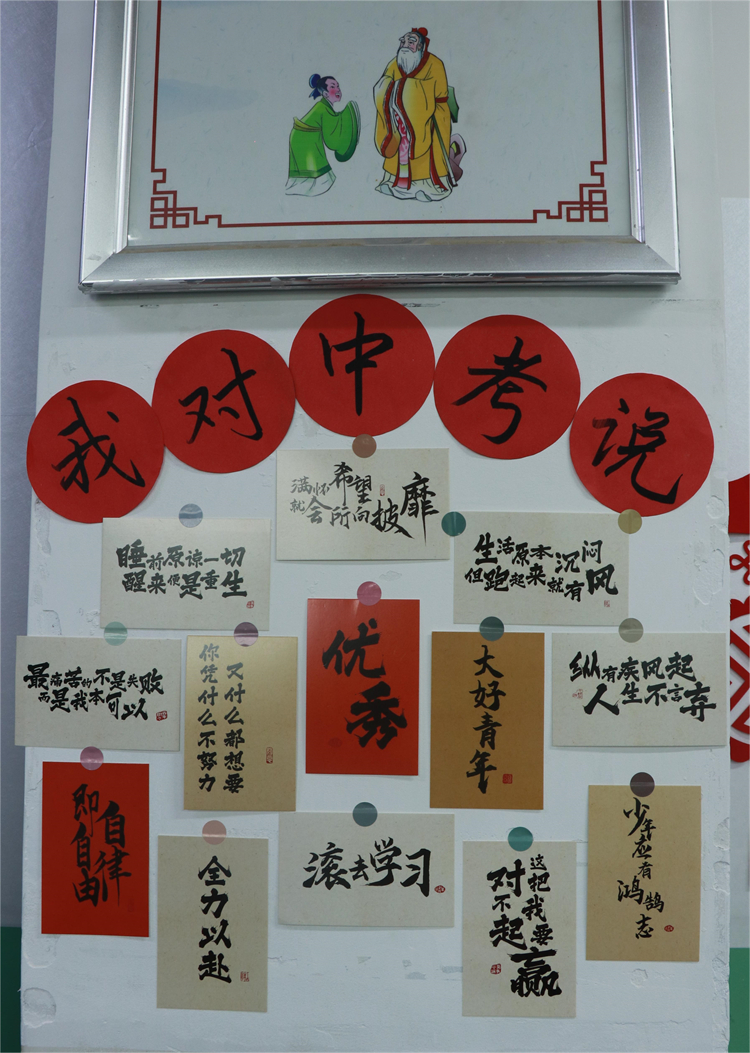 我对中考说
满怀希望
就会所向披靡
睡前原谅一切
醒来便是重生
生活原本沉闷
但跑起来就有风
最痛苦的不是失败
而是我本可以
你凭什么不努力
又什么都想要
优秀
大好青年
纵有疾风起
人生不言弃
自律
即自由
全力以赴
滚去学习
对不起
这把我要赢
少年应有
鸿鹄志